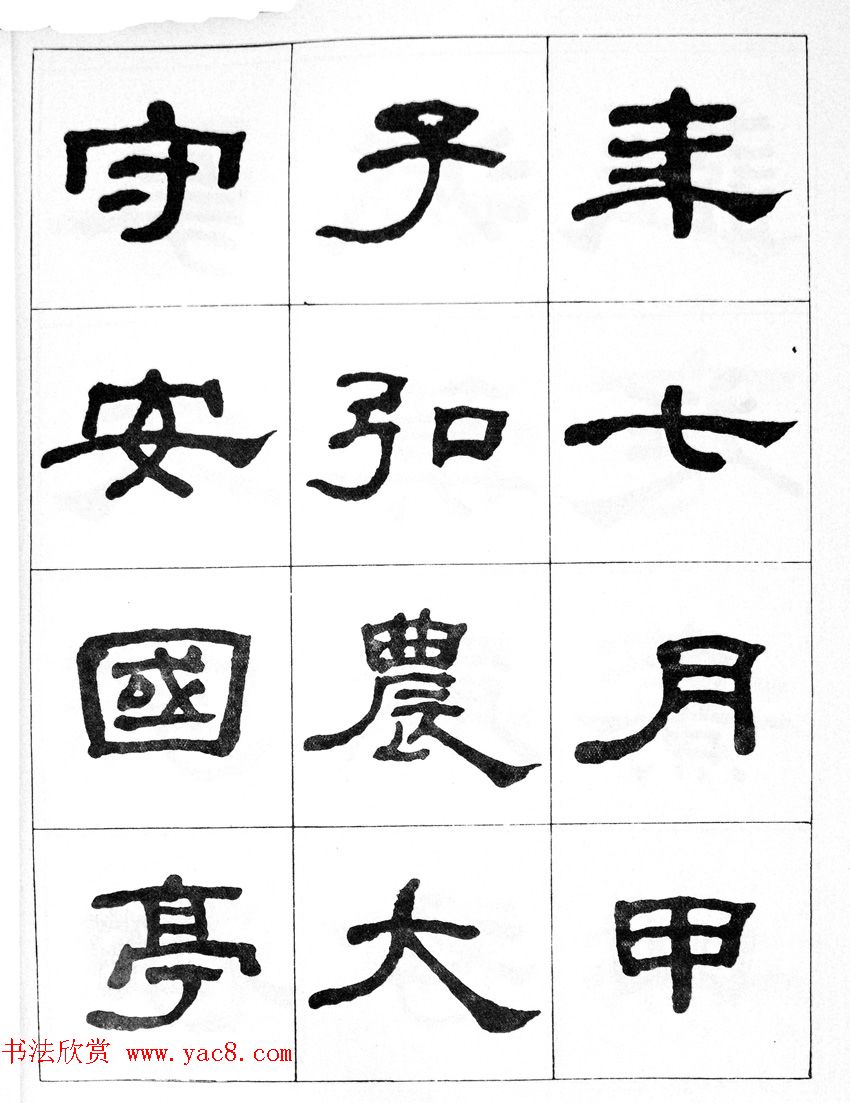 年七月甲
子弘農大
守安國亭
书法欣赏 www.yac8.com